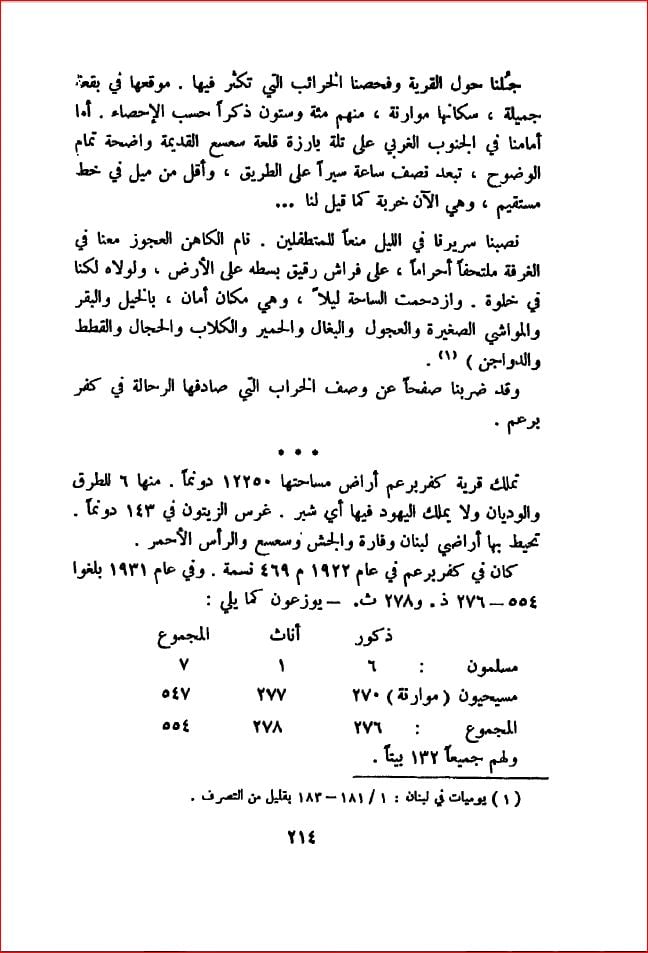 جُلنا حول القرية وفحصنا الخرائب التي تكثر فيها . موقعها في بقعة
جميلة ، سكانها موارنة ، منهم مئة وستون ذكراً حسب الإحصاء . أما
أمامنا في الجنوب الغربي على تلة بارزة قلعة سعسع القديمة واضحة تمام
الوضوح ، تبعد نصف ساعة سيراً على الطريق ، وأقل من ميل في خط
مستقيم ، وهي الآن خربة كما قيل لنا ...
نصبنا سريرنا في الليل منعاً للمتطفلين . نام الكاهن العجوز معنا في
الغرفة ملتحفاً أحراماً ، على فراش رقيق بسطه على الأرض ، ولولاه لكنا
في خلوة . وازدحمت الساحة ليلاً ، وهي مكان أمان ، بالخيل والبقر
والمواشي الصغيرة والعجول والبغال والحمير والكلاب والحجال والقطط
والدواجن ) (١) .
وقد ضربنا صفحاً عن وصف الخراب التي صادفها الرحالة في كفر
برعم .
* * *
تملك قرية كفربرعم أراض مساحتها ١٢٢٥٠ دونماً . منها ٦ للطرق
والوديان ولا يملك اليهود فيها أي شبر . غرس الزيتون في ١٤٣ دونماً .
تحيط بها أراضي لبنان وفارة والجش وسعسع والرأس الأحمر .
كان في كفربرعم في عام ١٩٢٢ م ٤٦٩ نسمة . وفي عام ١٩٣١ بلغوا
٥٥٤ – ٢٧٦ ذ. و٢٧٨ ث. – يوزعون كما يلي :
ذكور أناث المجموع
مسلمون : ٦ ١ ٧
مسيحيون ( موارنة ) ٢٧٠ ٢٧٧ ٥٤٧
المجموع : ٢٧٦ ٢٧٨ ٥٥٤
ولهم جميعاً ١٣٢ بيتاً .
( ١ ) يوميات في لبنان : ١ / ١٨١ – ١٨٣ بقليل من التصرف .
٢١٤